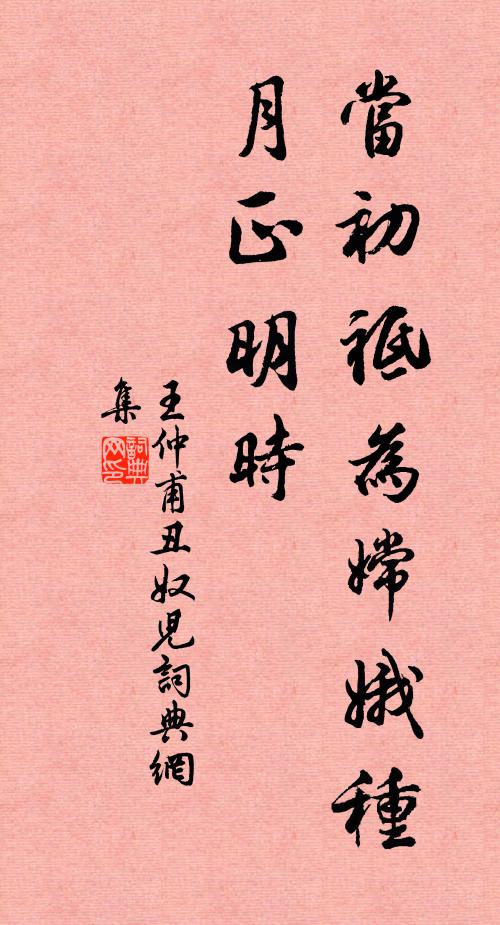 當初祇為嫦娥種
月正明時
王仲甫丑奴兒詞典網
集
詞典網印